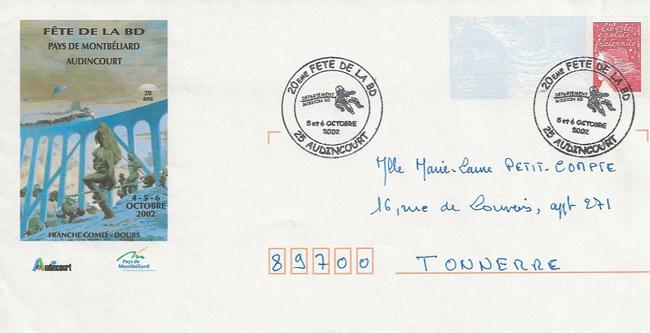 FÊTE DE LA BD
PAYS DE MONTBÉLIARD
AUDINCOURT
20
ans
4-5-6
OCTOBRE
2002
FRANCHE COMTÉ - DOUBS
Audincourt
Pays de
Montbéliard
20EME FÊTE DE LA BD
DÉPARTEMENT
MISSION BD
5 et 6 OCTOBRE
2002
25 AUDINCOURT
liberté
égalité
fraternité
20EME FÊTE DE LA BD
DÉPARTEMENT
MISSION BD
5 et 6 OCTOBRE
2002
25 AUDINCOURT
Mlle Marie-Laure PETIT-COMPTE
16, rue de Louvois, appt 271
89700 TONNERRE